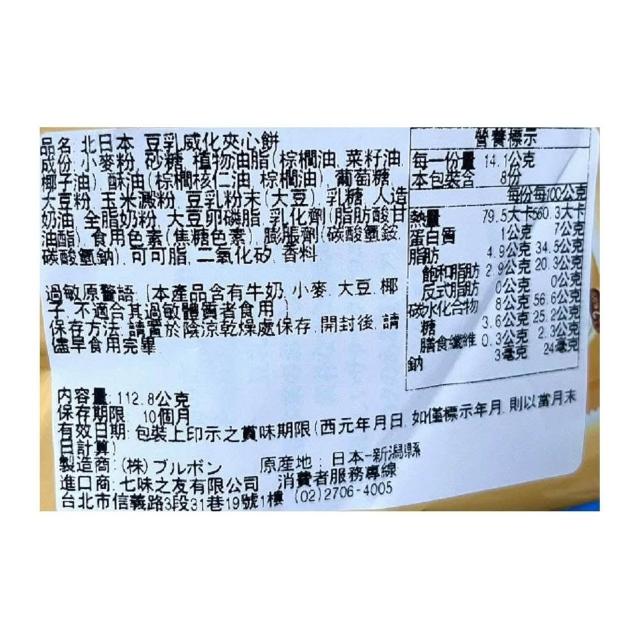 品名:北日本 豆乳威化夾心餅
成份:小麥粉,砂糖,植物油脂(棕櫚油,菜籽油,
椰子油),酥油(棕櫚核仁油,棕櫚油),葡萄糖,
大豆粉,玉米澱粉,豆乳粉末(大豆),乳糖,人造
奶油,全脂奶粉,大豆卵磷脂,乳化劑(脂肪酸甘
油酯),食用色素(焦糖色素),膨脹劑(碳酸氫銨,
碳酸氫鈉),可可脂,二氧化矽,香料
過敏原警語:[本產品含有牛奶,小麥,大豆,椰
子,不適合其過敏體質者食用]
保存方法:請置於陰涼乾燥處保存,開封後,請
儘早食用完畢
內容量:112.8公克
保存期限:10個月
有效日期:包裝上印示之賞味期限(西元年月日,如僅標示年月,則以當月末
日計算)
製造商:(株)ブルボン 原產地:日本-新潟縣
進口商:七味之友有限公司 消費者服務專線
台北市信義路3段31巷19號1樓 (02)2706-4005
營養標示
每一份量 14.1公克
本包裝含 8份
每份 每100公克
熱量 79.5大卡 560.3大卡
蛋白質 1公克 7公克
脂肪 4.9公克 34.5公克
飽和脂肪 2.9公克 20.3公克
反式脂肪 0公克 0公克
碳水化合物 8公克 56.6公克
糖 3.6公克 25.2公克
膳食纖維 0.3公克 2.3公克
鈉 3毫克 24毫克